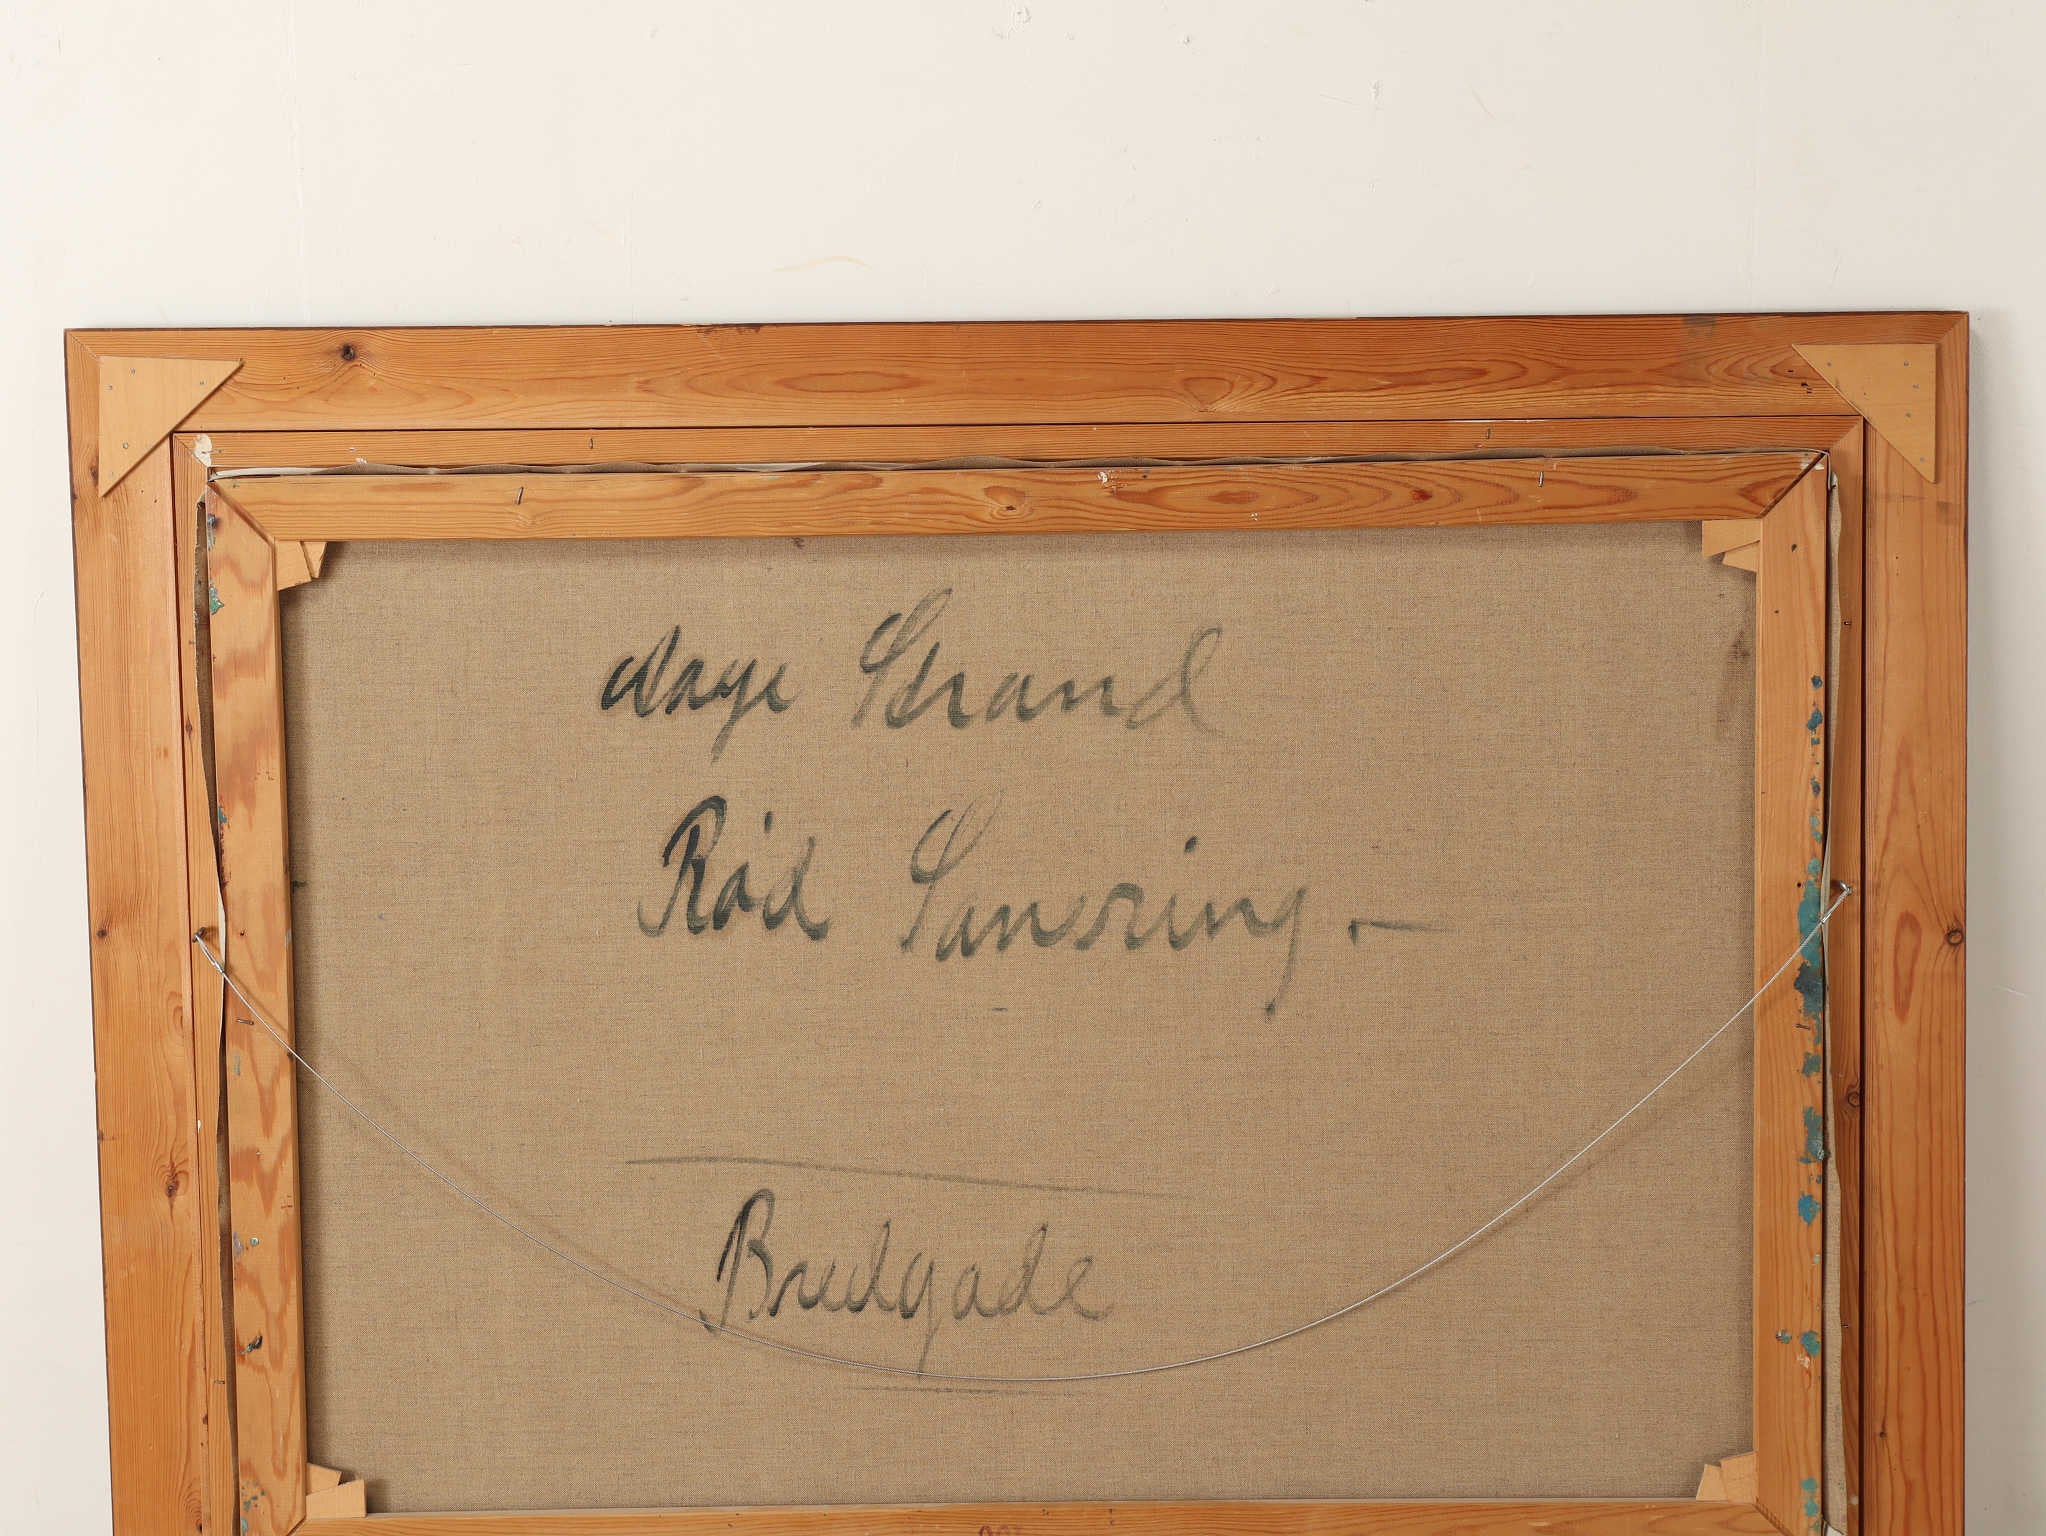 Aage Strand
Rød Sansering -
Bredgade